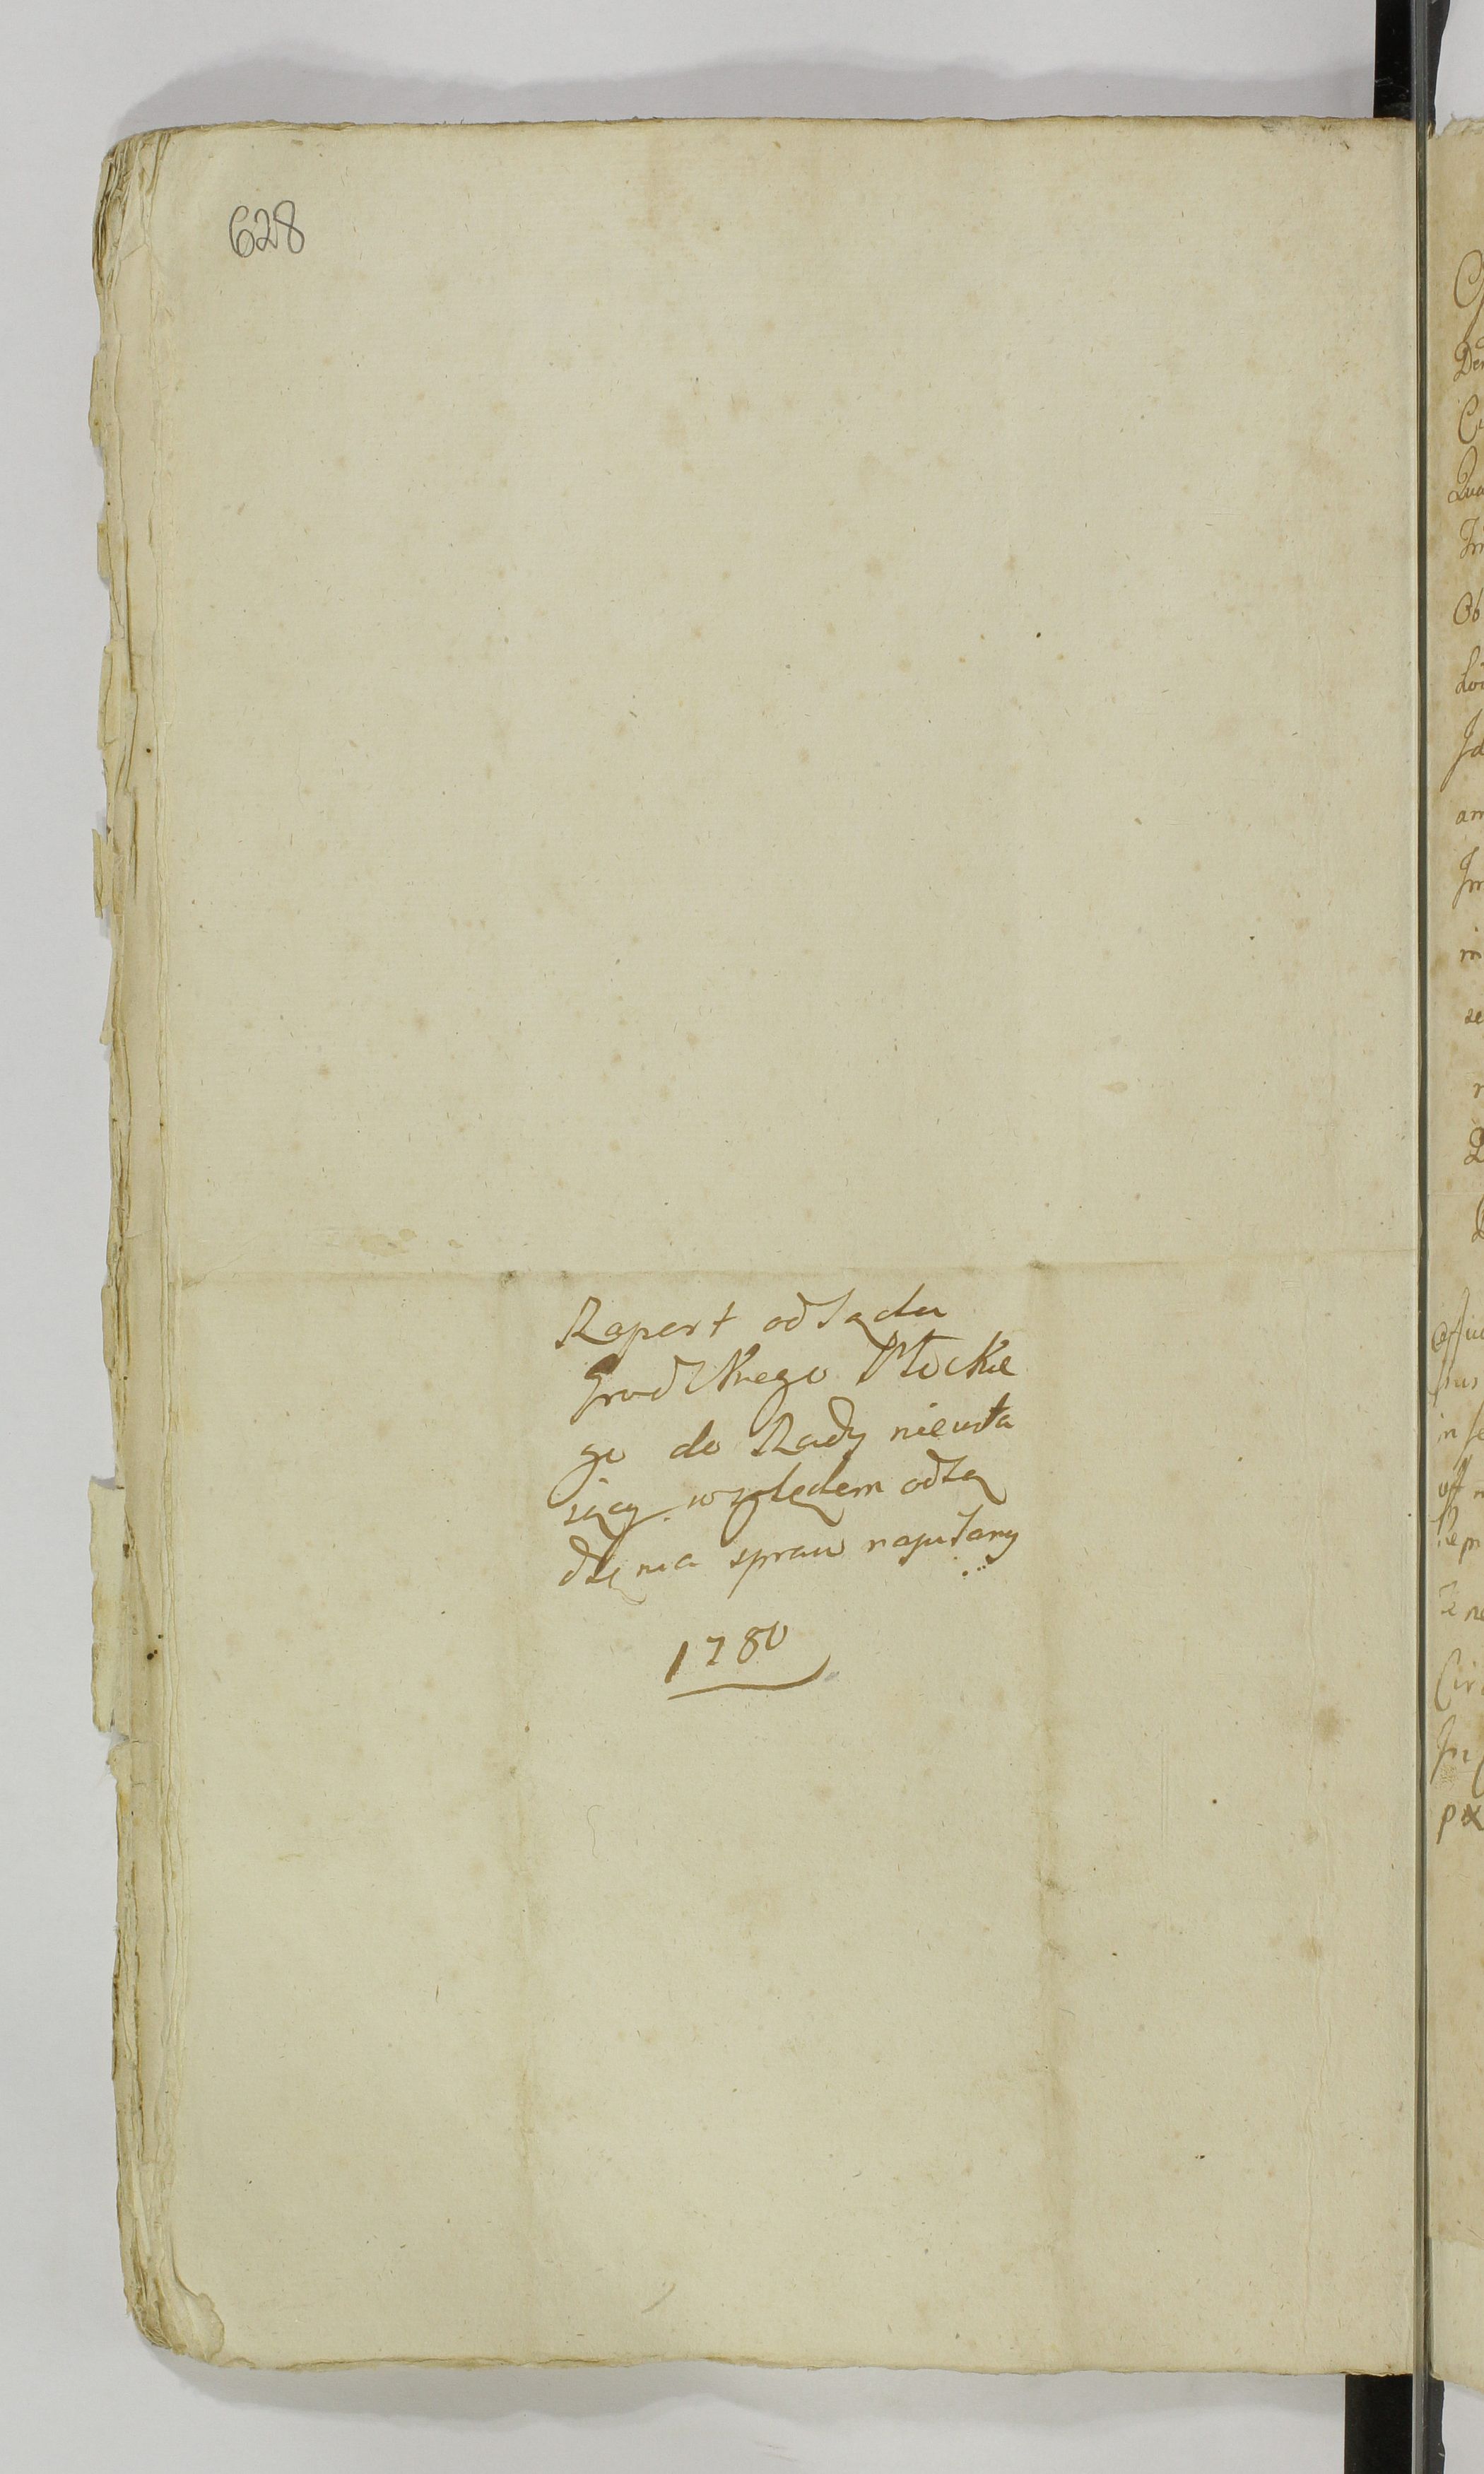 628
Raport od Sądu
Grodzkiego Płockie
go do Rady nieusta
iący względem odsą
dzęnia spraw napisany
1780